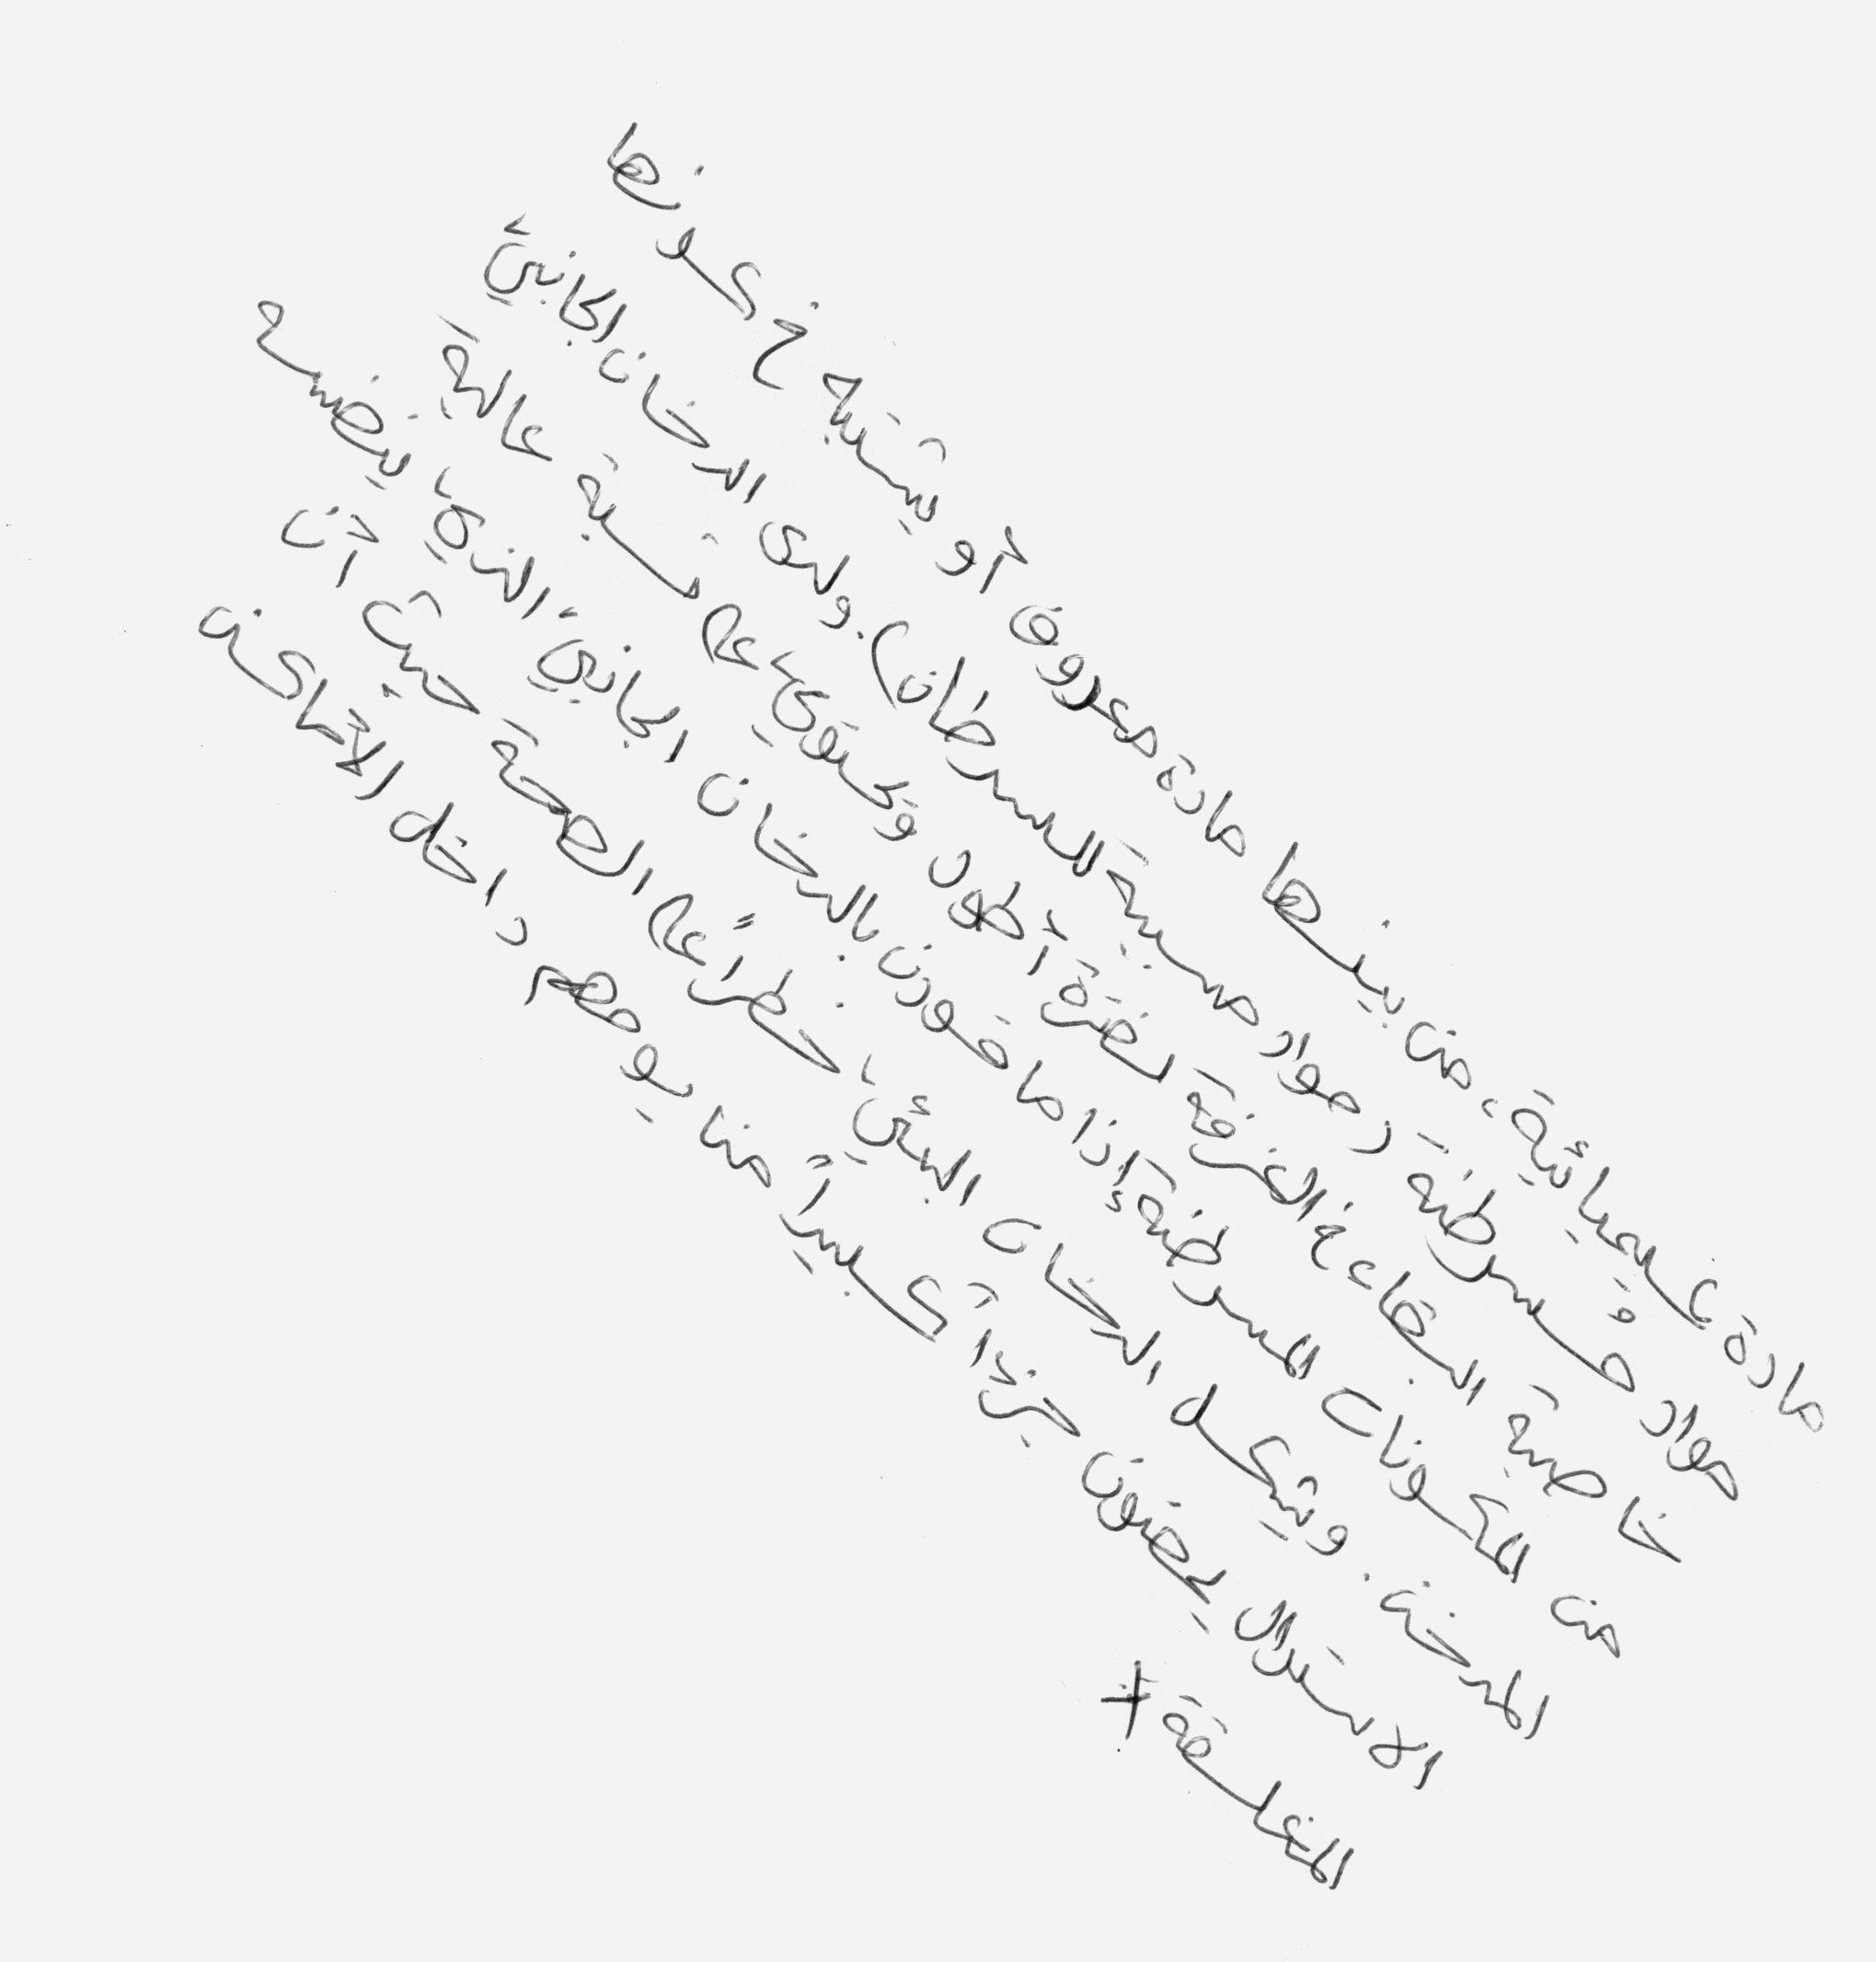 مادة كيميائية، من بينها مادة معروف أو يشتبه في كونها
مواد مسرطنة (مواد مسببة للسرطان). ولدى الدخان الجانبيّ
خاصية البقاء في الغرفة لفترة أطول وتحتوي على نسبة عالية
من المكونات المسرطنة إذا ما قورن بالدخان الجانبيّ الذي ينفثه
المدخن. ويشكل الدخان البيئي، خطراً على الصحة حيث أن
الاستدلال يمضون جزءاً كبيراً من يومهم داخل الأماكن
المغلقة +